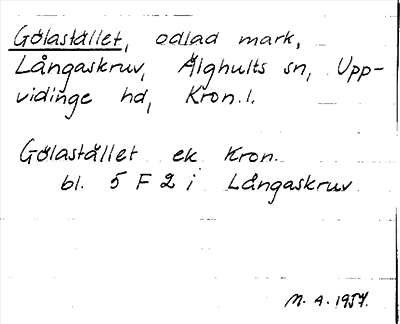 Gölastället, odlad mark,
Långaskruv, Älghults sn, Upp-
vidinge hd, Kron.l.
Gölastället ek Kron.
bl. 5 F 2 i Långaskruv
M. A. 1957.